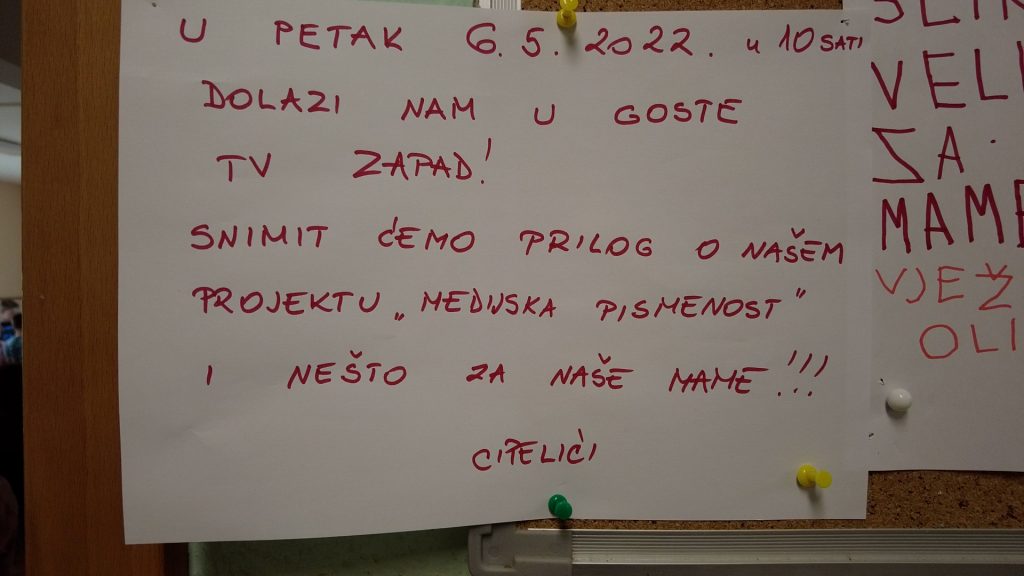 U PETAK 6.5.2022. u 10 SATI
DOLAZI NAM U GOSTE
TV ZAPAD!
SNIMIT ĆEMO PRILOG O NAŠEM
PROJEKTU „MEDIJSKA PISMENOST"
I NEŠTO ZA NAŠE MAME!!!
CIPELIĆI
VELI
ZA
MAME
VJEŽ
OLI